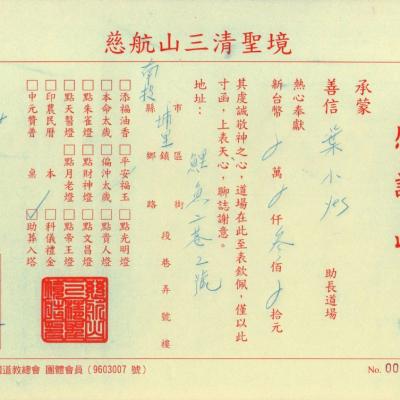 慈航山三清聖境
承蒙
善信 葉小 助長道場
熱心奉獻
新台幣 萬 仟 叁 佰 拾元
其虔誠敬神之心，道場在此至表欽佩，僅以此
寸函，上表天心，聊誌謝意。
地址：
南投 縣市 埔里 鄉鎮區 路街 段 巷 弄 號 樓
鯉魚二巷2號
□添福油香 □平安福玉 □點光明燈
□本命太歲 □偏沖太歲 □點貴人燈
□點朱雀燈 □點財神燈 □點文昌燈
□點天醫燈 □點月老燈 □點帝王燈
□印農民曆 本 □科儀禮金
□中元贊普 桌 ☑助葬入塔
道教總會 團體會員（9603007 號）
No. 00